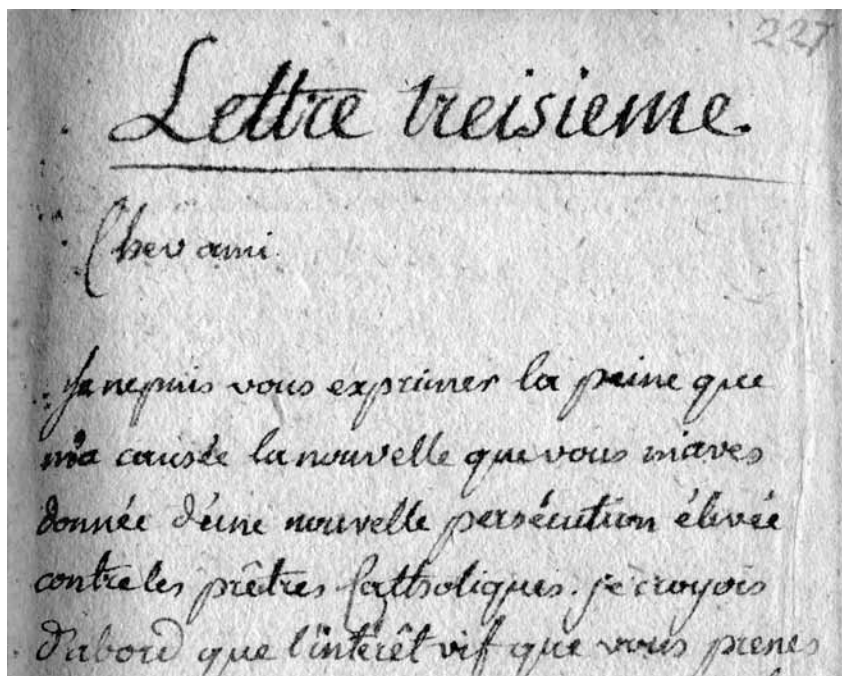 227
Lettre treisieme.
Cher ami.
Je ne puis vous exprimer la peine que
m'a causée la nouvelle que vous m'aves
donnée d'une nouvelle persécution élevée
contre les prêtres Catholiques. je croyois
d'abord que l'intérêt vif que vous prenes